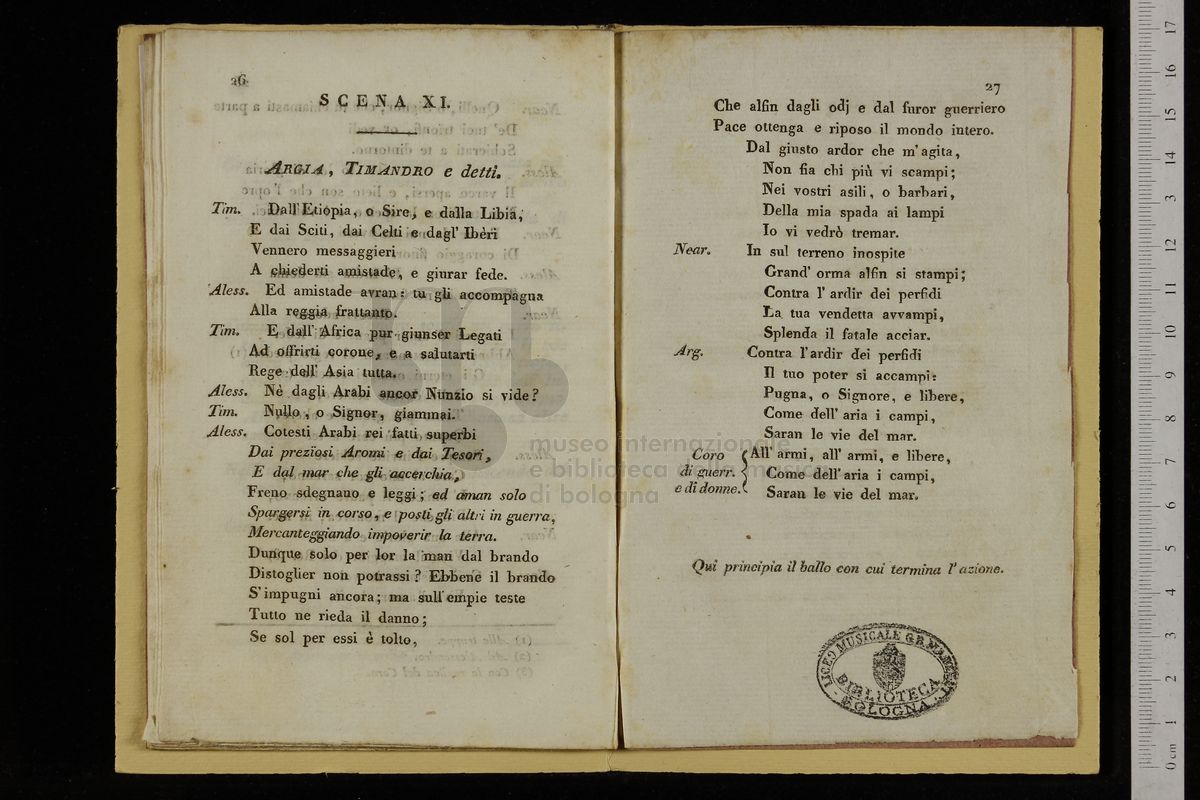 26
SCENA XI.
ARGIA, TIMANDRO e detti.
Tim. Dall' Etiopia, o Sire, e dalla Libia,
E dai Sciti, dai Celti e dagl' Ibèri
Vennero messaggieri
A chiederti amistade, e giurar fede.
Aless. Ed amistade avran: tu gli accompagna
Alla reggia frattanto.
Tim. E dall' Africa pur giunser Legati
Ad offrirti corone, e a salutarti
Rege dell' Asia tutta.
Aless. Nè dagli Arabi ancor Nunzio si vide?
Tim. Nullo, o Signor, giammai.
Aless. Cotesti Arabi rei fatti superbi
Dai preziosi Aromi e dai Tesori,
E dal mar che gli accerchia,
Freno sdegnano e leggi; ed aman solo
Spargersi in corso, e posti gli altri in guerra,
Mercanteggiando impoverir la terra.
Dunque solo per lor la man dal brando
Distoglier non potrassi? Ebbene il brando
S' impugni ancora; ma sull' empie teste
Tutto ne rieda il danno;
Se sol per essi è tolto,
27
Che alfin dagli odj e dal furor guerriero
Pace ottenga e riposo il mondo intero.
Dal giusto ardor che m' agita,
Non fia chi più vi scampi;
Nei vostri asili, o barbari,
Della mia spada ai lampi
Io vi vedrò tremar.
Near. In sul terreno inospite
Grand' orma alfin si stampi;
Contra l' ardir dei perfidi
La tua vendetta avvampi,
Splenda il fatale acciar.
Arg. Contra l' ardir dei perfidi
Il tuo poter si accampi:
Pugna, o Signore, e libere,
Come dell' aria i campi,
Saran le vie del mar.
Coro All' armi, all' armi, e libere,
di guerr. Come dell' aria i campi,
e di donne. Saran le vie del mar.
Qui principia il ballo con cui termina l' azione.
LICEO MUSICALE G.B. MARTINI
BIBLIOTECA
BOLOGNA
museo internazionale
e biblioteca della musica
di bologna